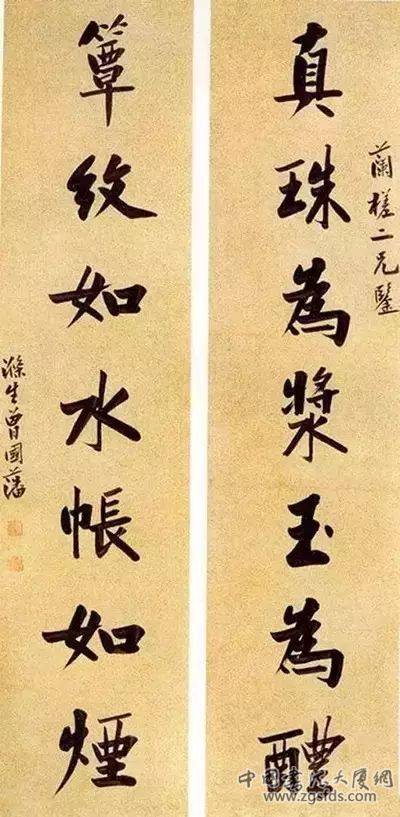 蘭槎二兄鑒
真珠為漿玉為醴
簟紋如水帳如煙
滌生曾國藩
中国書法大厦網
www.zgsfds.com